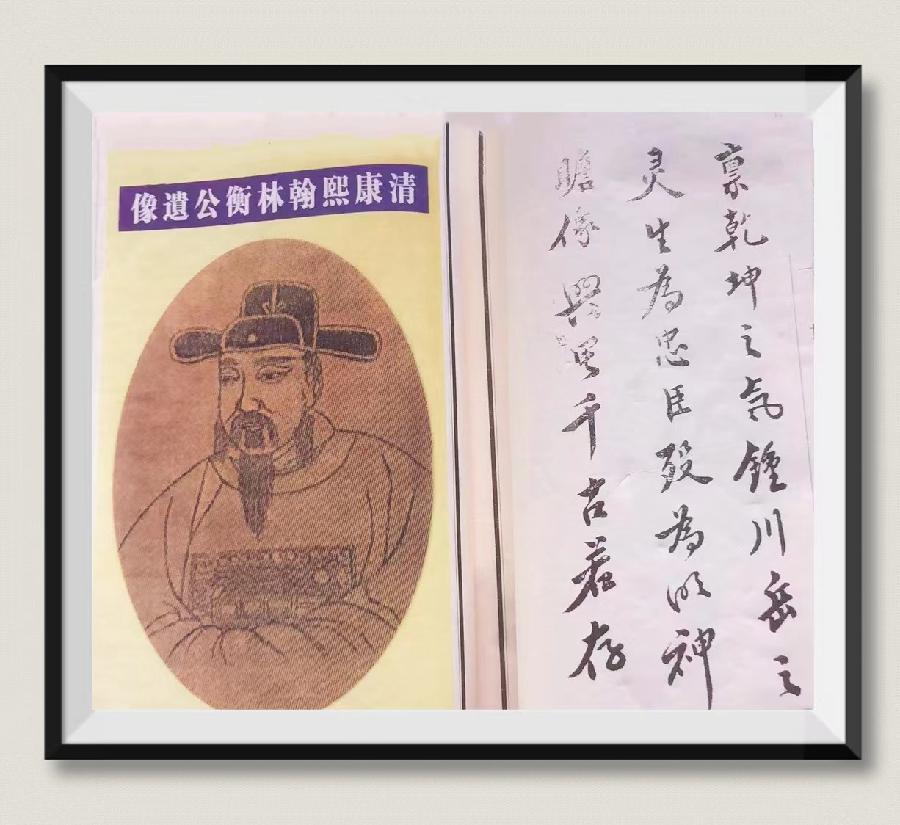 清康熙翰林衡公遺像
禀乾坤之氣鍾川岳之
灵生為忠臣殁為明神
瞻像興千古存